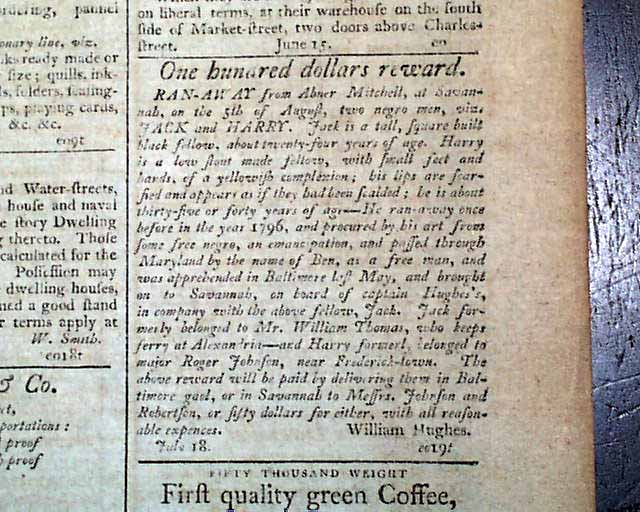 ordering, pannel
onary line, viz.
ks ready made or
size; quills, ink-
ls, folders, sealing-
ps, playing cards,
&c. &c.
eo9t
nd Water-streets,
house and naval
e story Dwelling
g thereto. Those
calculated for the
Possession may
dwelling-houses,
ned a good stand
r terms apply at
W. Smith.
eo18t
& Co.
rt,
portations:
l proof
h proof
on liberal terms, at their warehouse on the south
side of Market-street, two doors above Charles-
street. June 15. eo
One hundred dollars reward.
RAN-AWAY from Abner Mitchell, at Savan-
nah, on the 5th of August, two negro men, viz.
JACK and HARRY. Jack is a tall, square built
black fellow, about twenty-four years of age. Harry
is a low stout made fellow, with small feet and
hands, of a yellowish complexion; his lips are scar-
ified and appears as if they had been scalded; he is about
thirty-five or forty years of age—He ran-away once
before in the year 1796, and procured by his art from
some free negro, an emancipation, and passed through
Maryland by the name of Ben, as a free man, and
was apprehended in Baltimore last May, and brought
on to Savannah, on board of captain Hughes's,
in company with the above fellow, Jack. Jack for-
merly belonged to Mr. William Thomas, who keeps
ferry at Alexandria—and Harry formerl, belonged to
major Roger Johnson, near Frederick-town. The
above reward will be paid by delivering them in Bal-
timore gaol, or in Savannah to Messrs. Johnson and
Robertson, or fifty dollars for either, with all reason-
able expences. William Hughes.
July 18. eo19t
FIFTY THOUSAND WEIGHT
First quality green Coffee,